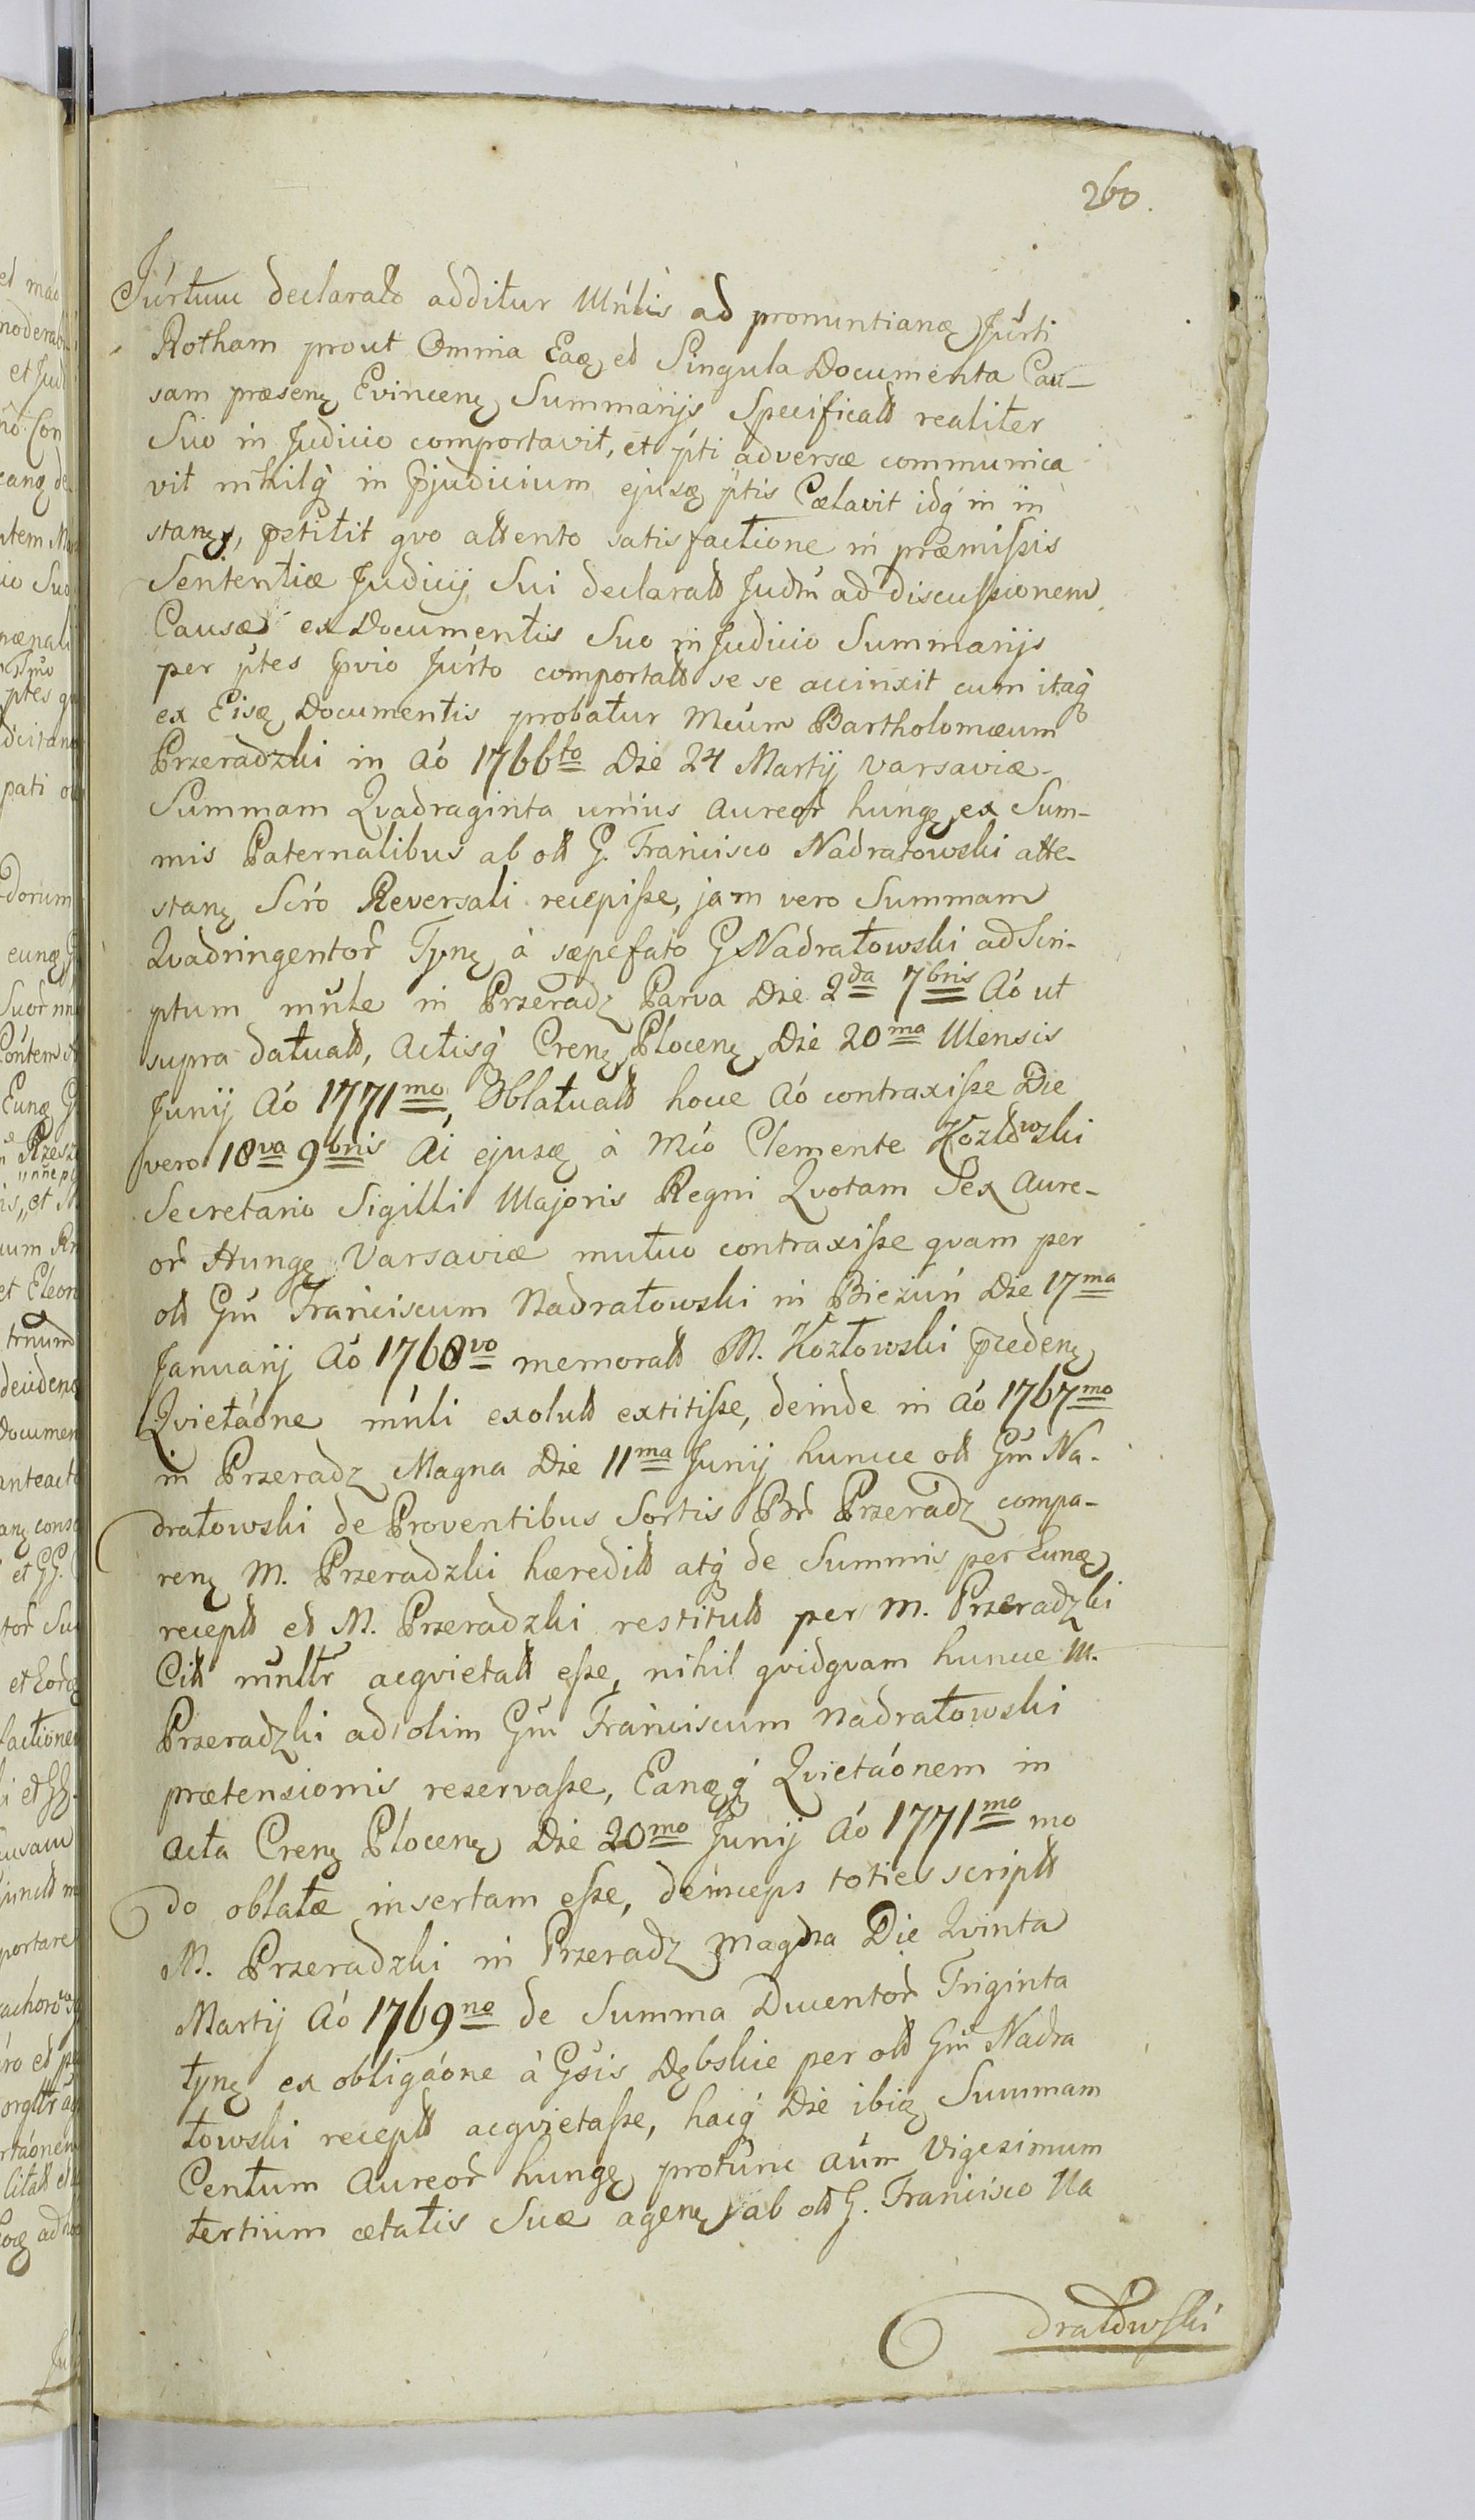 260.
Júrtum declarato additur Mńlis ad pronuntianꝫ Júrti
Rotham prout Omnia Eaꝫ et Singula Documenta Cau-
sam præsenꝫ Evincenꝫ Summarijs Specificatt realiter
Suo in Judicio comportavit, et ṕti adversæ communica
vit nihilq́ in p̄judicium ejusꝫ ṕtis Cælavit idq́ in in
stanꝫ, pstitit qvo attento satisfactione in præmißis
Sententiæ Judicij Sui declaratt Judm̄ ad discußionem
Causæ ex Documentis Suo in Judicio Summarijs
per ṕtes p̄vio Júrto comportatt se se accinxit cum itaq́
ex Eisꝫ Documentis probatur Mćum Bartholomæum
Przeradzki in Aó 1766to Die 24 Martij Varsaviæ
Summam Qvadraginta unius Aureor̃ hungꝫ ex Sum-
mis Paternalibus ab olt G. Francisco Nadratowski atte-
stanꝫ Scró Reversali recepiße, jam vero Summam
Qvadringentor̃ Tynꝫ à sæpefato G Nadratowski ad Scri-
ptum mńle in Przeradz Parva Die 2da 7bris Aó ut
supra datuatt, Actisq́ Crenꝫ Plocenꝫ Die 20ma Mensis
Junij Aó 1771mo, Oblatuatt hocce Aó contraxiße Die
vero 18va 9bris Ai ejusꝫ à Mío Clemente Kozłowski
Secretario Sigilli Majoris Regni Qvotam Sex Aure-
or̃ Hungꝫ Varsaviæ mutuo contraxiße qvam per
olt Gm̃ Franciscum Nadratowski in Bieżuń Die 17ma
Januarij Aó 1768vo memoratt M. Kozłowski p̄cedenꝫ
Qvietáone mńli exolutt extitiße, deinde in Aó 1767mo
in Przeradz Magna Die 11ma Junij huncce olt Gm̃ Na-
dratowski de Proventibus Sortis Bór̃ Przeradz compa-
renꝫ M. Przeradzki hæreditt atq́ de Summis per Eunꝫ
receptt et M. Przeradzki restitutt per M. Przeradzki
Citt mńltr̃ acqvietatt eße, nihil qvidqvam huncce M.
Przeradzki ad olim Gm̃ Franciscum Nadratowski
prætensionis reservaße, Eanꝫq́ Qvietáonem in
Acta Crenꝫ Plocenꝫ Die 20mo Junij Aó 1771mo mo
do oblatæ insertam eße, deinceps toties scriptt
M. Przeradzki in Przeradz Magna Die Qvinta
Martij Aó 1769no de Summa Ducentor̃ Triginta
tynꝫ ex obligáone à Gśis Dębskie per olt Gm̃ Nadra
towski receptt acqvietaße, hacq́ Die ibiꝫ Summam
Centum Aureor̃ hungꝫ protunc aúm Vigesimum
tertium ætatis Suæ agenꝫ ab olt G. Francisco Na
dratowski